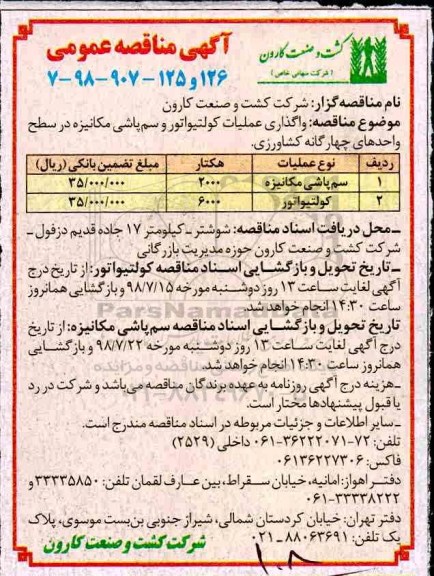 کشت و صنعت کارون
(شرکت سهامی خاص)
آگهی مناقصه عمومی
۱۲۶ و ۱۲۵ – ۹۰۷ – ۹۸ – ۷
نام مناقصه‌گزار: شرکت کشت و صنعت کارون
موضوع مناقصه: واگذاری عملیات کولتیواتور و سم‌پاشی مکانیزه در سطح
واحدهای چهارگانه کشاورزی.
ردیف نوع عملیات هکتار مبلغ تضمین بانکی (ریال)
۱ سم‌پاشی مکانیزه ۲۰۰۰ ۳۵/۰۰۰/۰۰۰
۲ کولتیواتور ۶۰۰۰ ۳۵/۰۰۰/۰۰۰
ـ محل دریافت اسناد مناقصه: شوشتر ـ کیلومتر ۱۷ جاده قدیم دزفول ـ
شرکت کشت و صنعت کارون حوزه مدیریت بازرگانی
ـ تاریخ تحویل و بازگشایی اسناد مناقصه کولتیواتور: از تاریخ درج
آگهی لغایت ساعت ۱۳ روز دوشنبه مورخه ۹۸/۷/۱۵ و بازگشایی همانروز
ساعت ۱۴:۳۰ انجام خواهد شد.
تاریخ تحویل و بازگشایی اسناد مناقصه سم‌پاشی مکانیزه: از تاریخ
درج آگهی لغایت ساعت ۱۳ روز دوشنبه مورخه ۹۸/۷/۲۲ و بازگشایی
همانروز ساعت ۱۴:۳۰ انجام خواهد شد.
ـ هزینه درج آگهی روزنامه به عهده برندگان مناقصه می‌باشد و شرکت در رد
یا قبول پیشنهادها مختار است.
ـ سایر اطلاعات و جزئیات مربوطه در اسناد مناقصه مندرج است.
تلفن: ۷۲-۳۶۲۲۲۰۷۱-۰۶۱ داخلی (۲۵۲۹)
فاکس: ۰۶۱۳۶۲۲۷۳۰۶
دفتر اهواز: امانیه، خیابان سقراط، بین عارف لقمان تلفن: ۳۳۳۳۵۸۵۰ و
۰۶۱-۳۳۳۳۸۲۲۲
دفتر تهران: خیابان کردستان شمالی، شیراز جنوبی بن‌بست موسوی، پلاک
یک تلفن: ۸۸۰۶۳۶۹۱-۰۲۱
شرکت کشت و صنعت کارون
۱۰۸